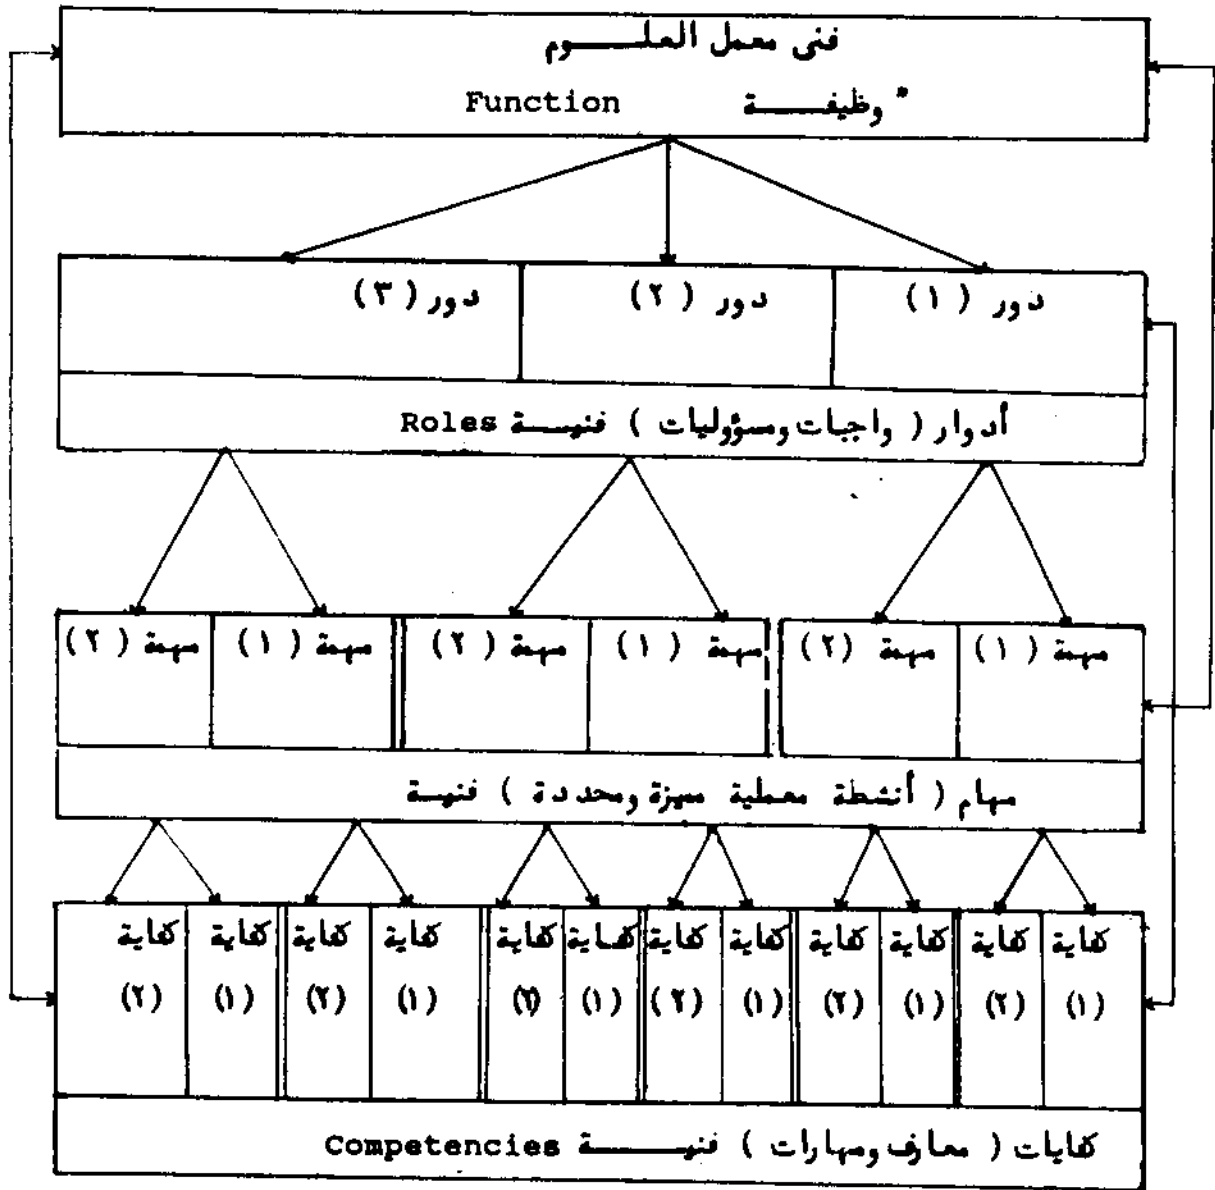 فنى معمل العلـــــوم
* وظيفــــة Function
دور ( ١ ) دور ( ٢ ) دور ( ٣ )
أدوار ( واجبات ومسؤوليات ) فنيـــة Roles
مهمة ( ١ ) مهمة ( ٢ ) مهمة ( ١ ) مهمة ( ٢ ) مهمة ( ١ ) مهمة ( ٢ )
مهام ( أنشطة معملية مميزة ومحددة ) فنيـة
كفاية كفاية كفاية كفاية كفاية كفاية كفاية كفاية كفاية كفاية كفاية كفاية
(١) (٢) (١) (٢) (١) (٢) (١) (٢) (١) (٢) (١) (٢)
كفايات ( معارف ومهارات ) فنيــــة Competencies